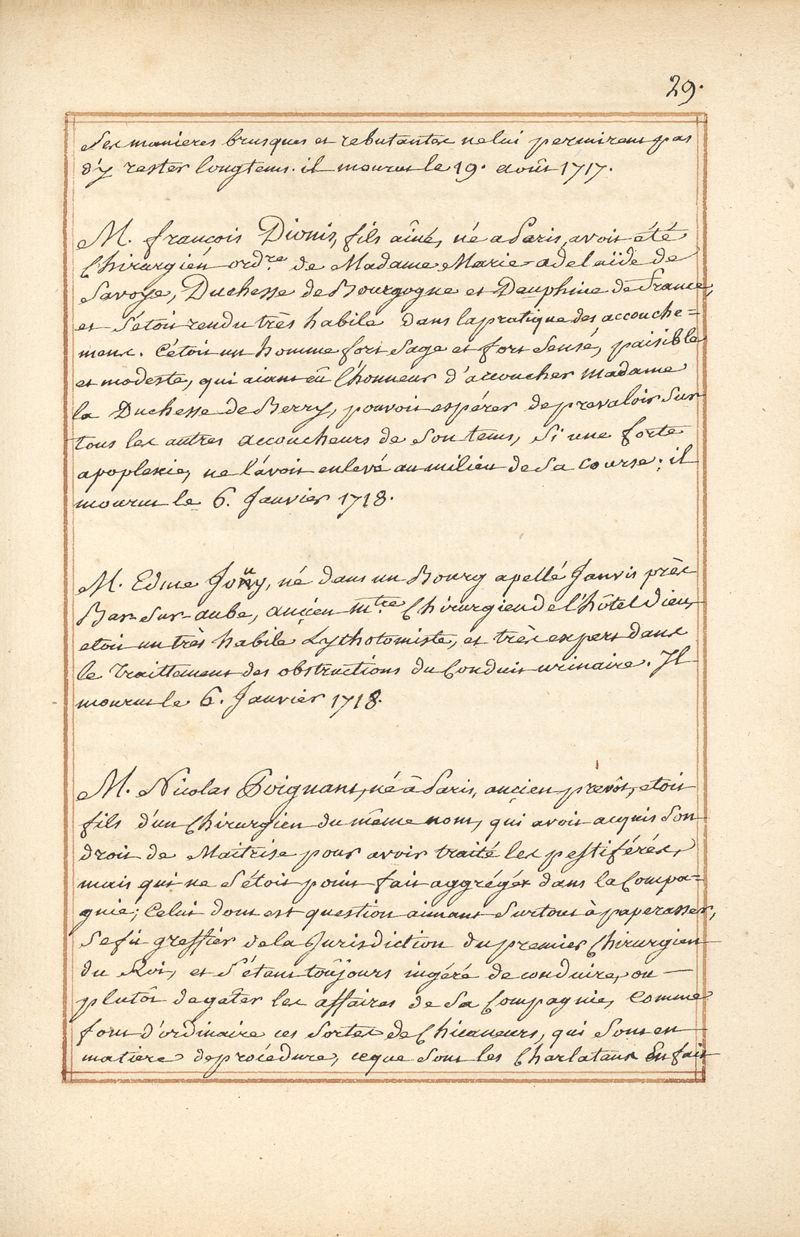 29.
Ses manieres brusques et rebutantes ne lui permirent pas
d'y rester longtems. il mourut le 19. août 1717.
M. françois Dionis, fils aîné, né a Paris, avoit été
Chirurgien ord.re de Madame Marie-adelaïde de
Savoye, Duchesse de Bourgogne et Dauphine de France,
et s'étoit rendu très habile dans la pratique des accouche=
mens. C'étoit un homme fort sage et fort sensé, paisible
et modeste, qui aiant eû l'honneur d'accoucher Madame
la Duchesse de Berry, pouvoit espérer de prevaloir sur
tous les autres accoucheurs de son tems, si une forte
apoplexie, ne l'avoit enlevé au milieu de sa course; il
mourut le 6. Janvier 1718.
M. Edme Jouy, né dans un Bourg apellé Janvis près
Bar-sur-aube, ancien m.tre Chirurgien de l'hôtel Dieu,
etoit un très habile Lythotomiste, et très expert dans
le traittement des obstructions du Conduit urinaire. Il
mourut le 6. Janvier 1718.
M. Nicolas Poignant, né à Paris, ancien prevôt, etoit
fils d'un Chirurgien du même nom, qui avoit acquis son
droit de Maitrise pour avoir traité les pestiférés,
mais qui ne s'étoit point fait aggréger dans la Compa=
gnie; Celui dont est question aimant surtout à paperasser,
se fit greffier de la Jurisdiction du premier Chirurgien
du Roi, et s'étant toûjours ingéré de conduire, ou —
plutôt de gâter les affaires de sa Compagnie, comme
font d'ordinaire ces sortes de Chicaneurs, qui sont en
matière de procédure, ce que sont les Charlatans en fait